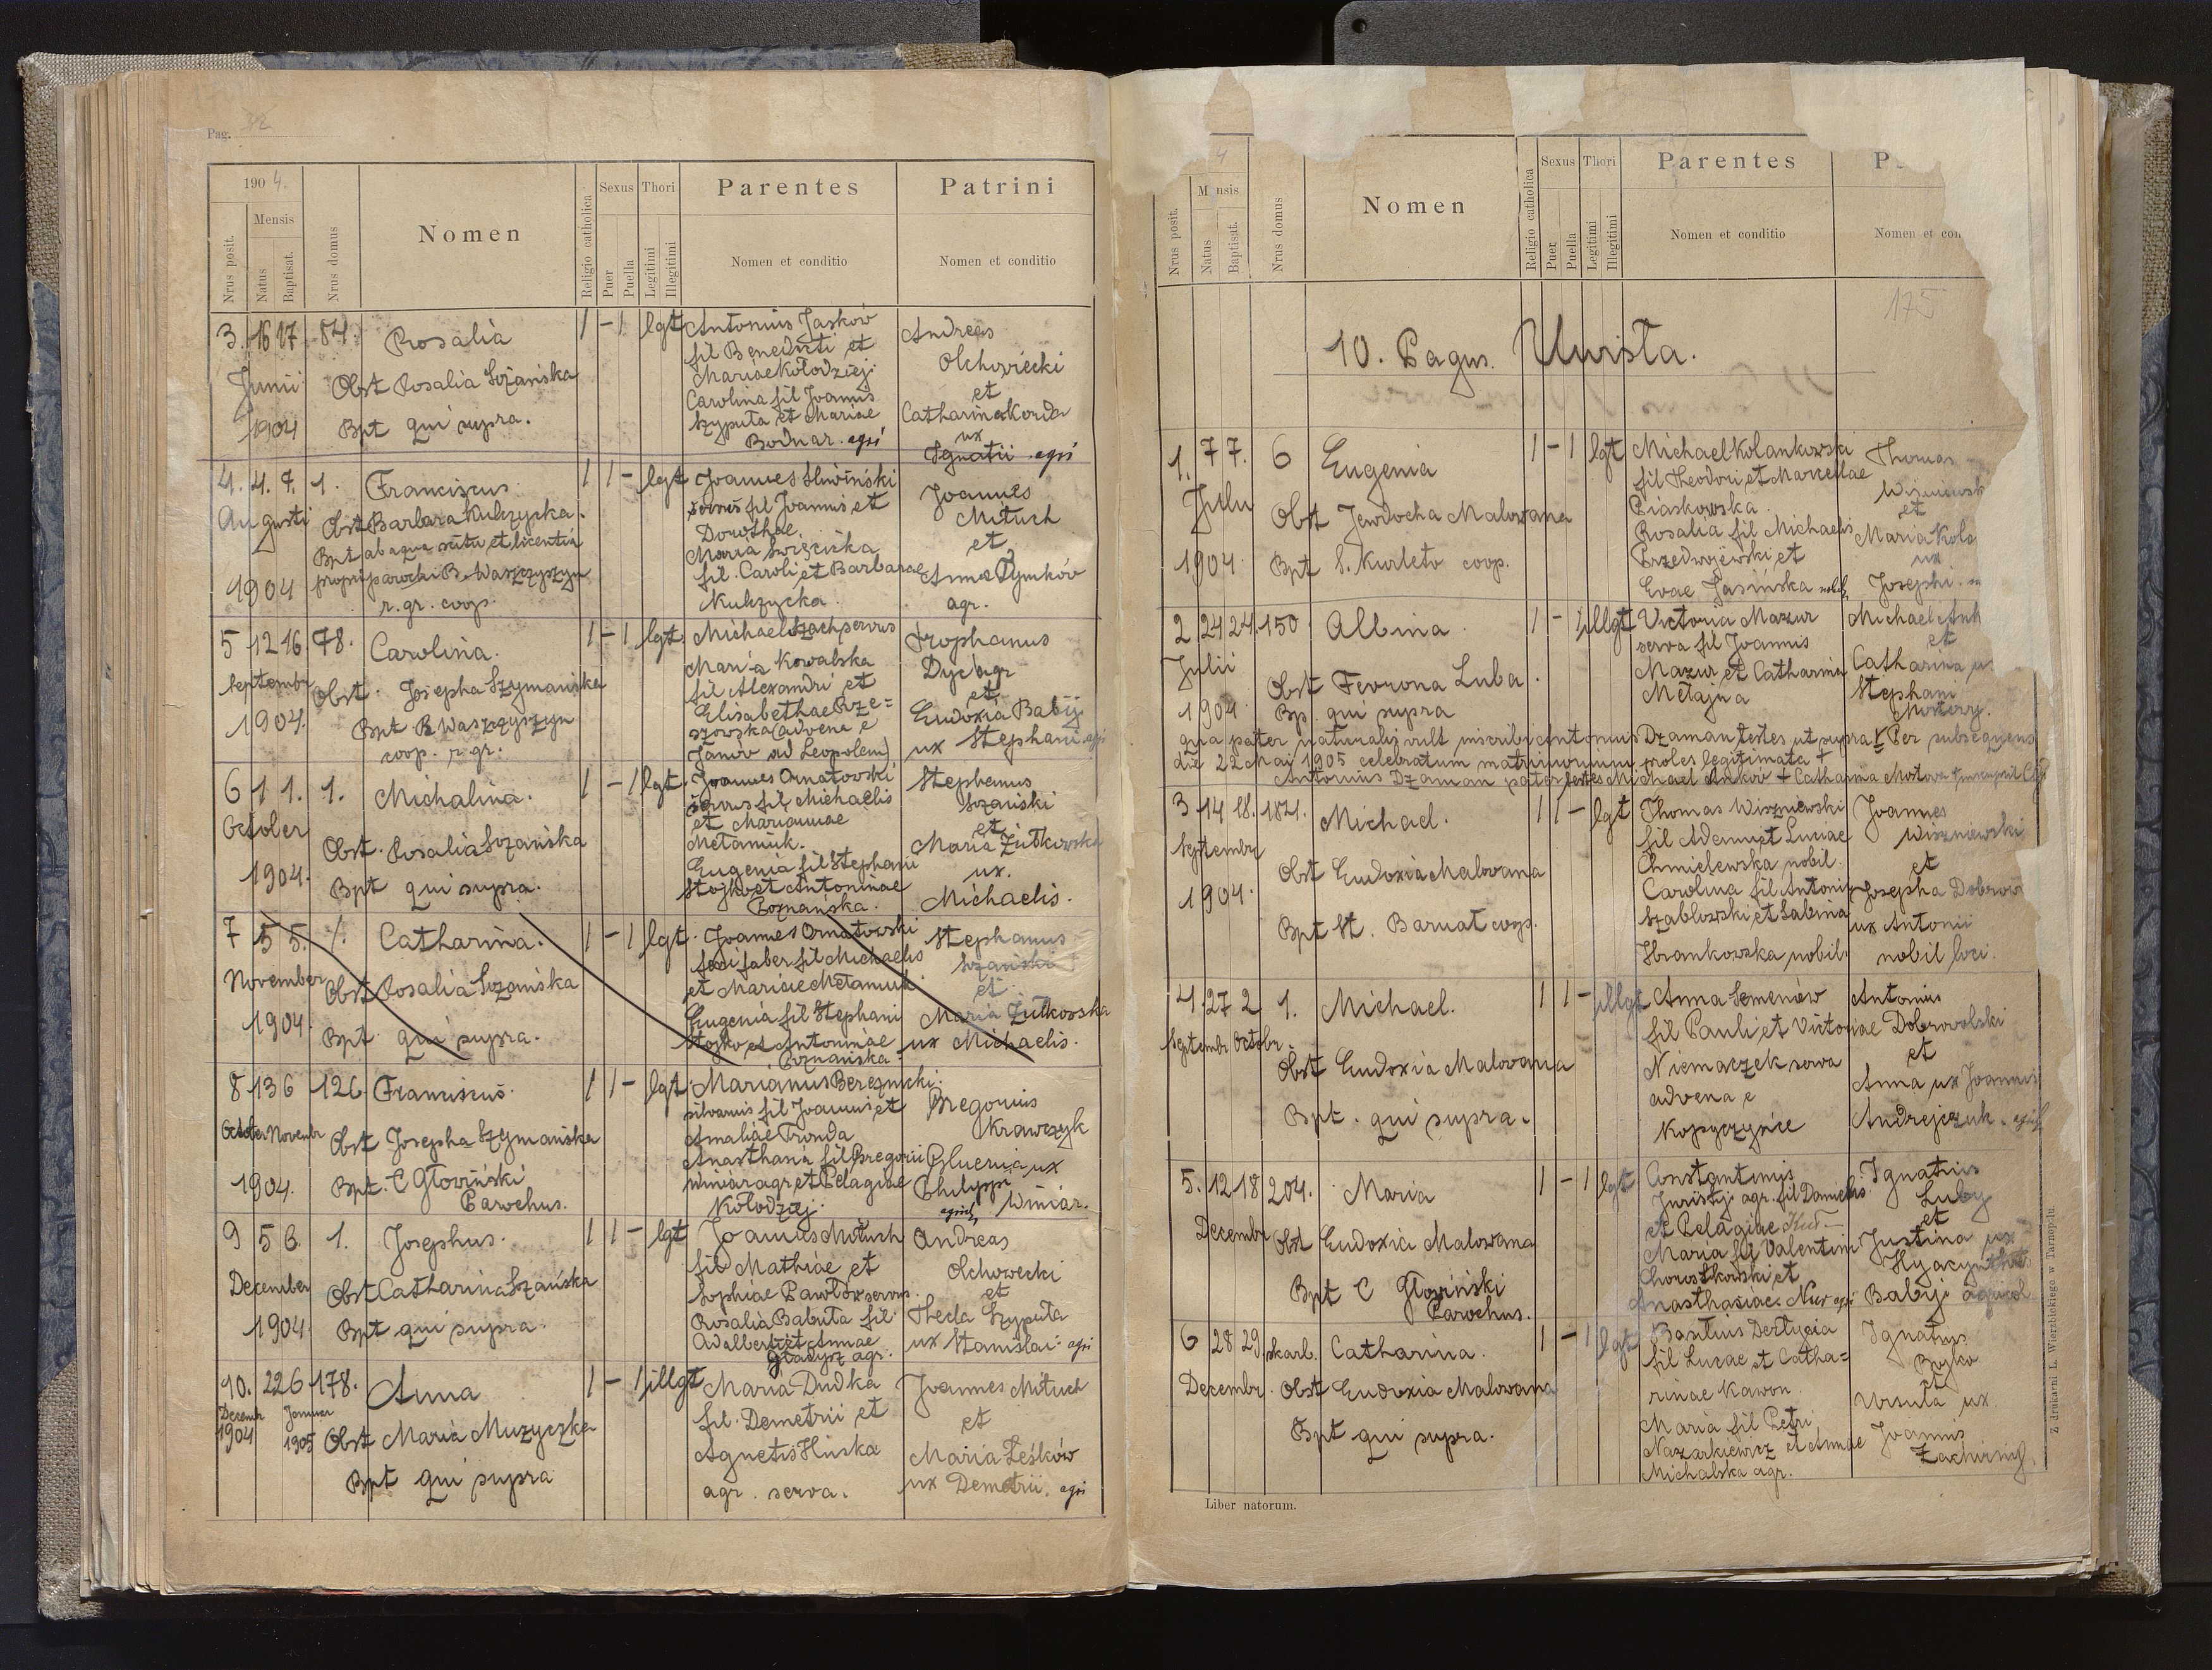 Pag. 32
190 4.
Nrus posit.
Mensis
Natus
Baptisat.
Nrus domus
Nomen
Religio catholica
Sexus
Puer
Puella
Thori
Legitimi
Illegitimi
Parentes
Nomen et conditio
Patrini
Nomen et conditio
3. 16 17 84. Rosalia 1 - 1 lgt
Junii Obst Rosalia Sozańska
1904 Bpt qui supra.
Antonius Jaskow
fil Benedicti et
Mariae Kołodziej
Carolina fil Joannis
Szyputa et Mariae
Bodnar. agri
Andreas
Olchowiecki
et
Catharina Korda
ux
Ignatii agri
4. 4. 7. 1. Franciscus 1 1 - lgt
Augusti Obst Barbara Kulczycka.
Bpt ab aqua scitu et licentia
proprii parochi B. Waszczyszyn
1904 r. gr. coop.
Joannes Sliwiński
servus fil Joannis et
Dorothae
Maria Święciska
fil. Caroli et Barbarae
Kulczycka.
Joannes
Mituch
et
Anna Tymków
agr.
5 12 16. 78. Carolina. 1 - 1 lgt
Septembr Obst. Josepha Szymańska
1904. Bpt B. Waszczyszyn
coop. r. gr.
Michael Szach servus
Maria Kowalska
fil Alexandri et
Elisabethae Rze=
szowska (advena e
Janów ad Leopolem)
Trophanus
Dyc agr
et
Eudoxia Babij
ux Stephani agri
6 1 1. 1. Michalina. 1 - 1 lgt
October Obst. Rosalia Sozańska
1904. Bpt qui supra.
Joannes Ornatowski
servus fil Michaelis
et Mariannae
Metaniuk.
Eugenia fil Stephani
Stojko et Antoninae
Poznańska.
Stephanus
Sozański
et
Maria Żutkowska
ux.
Michaelis.
7 5 5. 1. Catharina. 1 - 1 lgt.
November Obst Rosalia Sozańska
1904. Bpt qui supra.
Joannes Ornatowski
faber fil Michaelis
et Mariae Metaniuk
Eugenia fil Stephani
Stojko et Antoninae
Poznańska.
Stephanus
Sozański
et
Maria Żutkowska
ux Michaelis.
8 13 6 126 Franciscus. 1 1 - lgt
October Novembr Obst Josepha Szymańska
1904. Bpt. C Głowiński
Parochus.
Marianus Bereznicki
silvanus fil Joannis et
Amaliae Tronda
Anasthasia fil Gregorii
Winiar agr et Pelagiae
Kołodzej.
Gregorius
Krawczyk
ux
Philippi
Winiar.
9 5 6. 1. Josephus. 1 1 - lgt
December Obst Catharina Szańska
1904. Bpt qui supra.
Joannes Mituch
fil Mathiae et
Sophiae Pawłów servus.
Rosalia Babuta fil
Adalberti et Annae
Gładysz agr.
Andreas
Olchowecki
et
Thecla Szyputa
ux Stanislai agri
10. 22 6 178. Anna 1 - 1 illgt
Decembr Januar
1904 1905 Obst Maria Muzyczka
Bpt qui supra
Maria Dudka
fil. Demetrii et
Agnetis Hliska
agr. serva.
Joannes Mituch
et
Maria Leśków
ux Demetrii. agri
4
Nrus posit.
Mensis
Natus
Baptisat.
Nrus domus
Nomen
Religio catholica
Sexus
Puer
Puella
Thori
Legitimi
Illegitimi
Parentes
Nomen et conditio
P
Nomen et con
175
10. Pagus. Uwisła.
1. 7 7. 6 Eugenia 1 - 1 lgt
Julii Obst Jewdocha Malowana
1904. Bpt S. Kurleto coop.
Michael Kolankowski
fil Theodori et Marcellae
Piaskowska.
Rosalia fil Michaelis
Przedwojewski et
Evae Jasińska nobil.
Thomas
Wisniewsk
et
Maria Kola
ux
Josephi.
2 24 24. 150 Albina. 1 - 1 illgt
Julii Obst Fevrona Luba.
1904 Bp. qui supra
Victoria Mazur
serva fil Joannis
Mazur et Catharina
Metajna
Michael Ank
et
Catharina u
Stephani
qua pater naturalis vult inscribi Antonius Dzaman testes ut supra Per subsequens
die 22 Maj 1905 celebratum matrimonium proles legitimata +
Antonius Dzaman pater testes Michael Ankow + Catharina
3 14 18. 184. Michael. 1 1 - lgt
Septembr Obst Eudoxia Malowana
1904. Bpt St. Barnat coop.
Thomas Wiszniewski
fil Adami et Luciae
Chmielewska nobil.
Carolina fil Antonii
Szablowski et Sabina
Hrankowska nobil.
Joannes
Wiszniewski
et
Josepha Dobrow
ux Antonii
nobil loci.
4. 27 2 1. Michael. 1 1 - illgt
Septembr Octobr. Obst Eudoxia Malowana
Bpt. qui supra.
Anna Semeniów
fil Pauli et Victoriae
Niemaczek serva
advena e
Kopyczynce
Antonius
Dobrowolski
et
Anna ux Joannis
Andrejczuk.
5. 12 18 204. Maria 1 - 1 lgt
Decembr Obst Eudoxia Malowana
Bpt C Głowiński
Parochus.
Constantinus
agr. fil Danielis
et Pelagiae
Maria fil Valentini
Chorostkowski et
Anasthasiae
Ignatius
Luby
et
Justina ux
Hyacynthi
Babij
6 28 29. skarb. Catharina. 1 - 1 lgt
Decembr. Obst Eudoxia Malowana
Bpt qui supra.
Basilius Dertycia
fil Lucae et Catha=
rinae Kawon.
Maria fil Petri
Nazarkiewicz et Annae
Michalska agr.
Ignatius
Boyko
et
Ursula ux.
Joannis
Liber natorum.
Z drukarni L. Wierzbickiego w Tarnopolu.